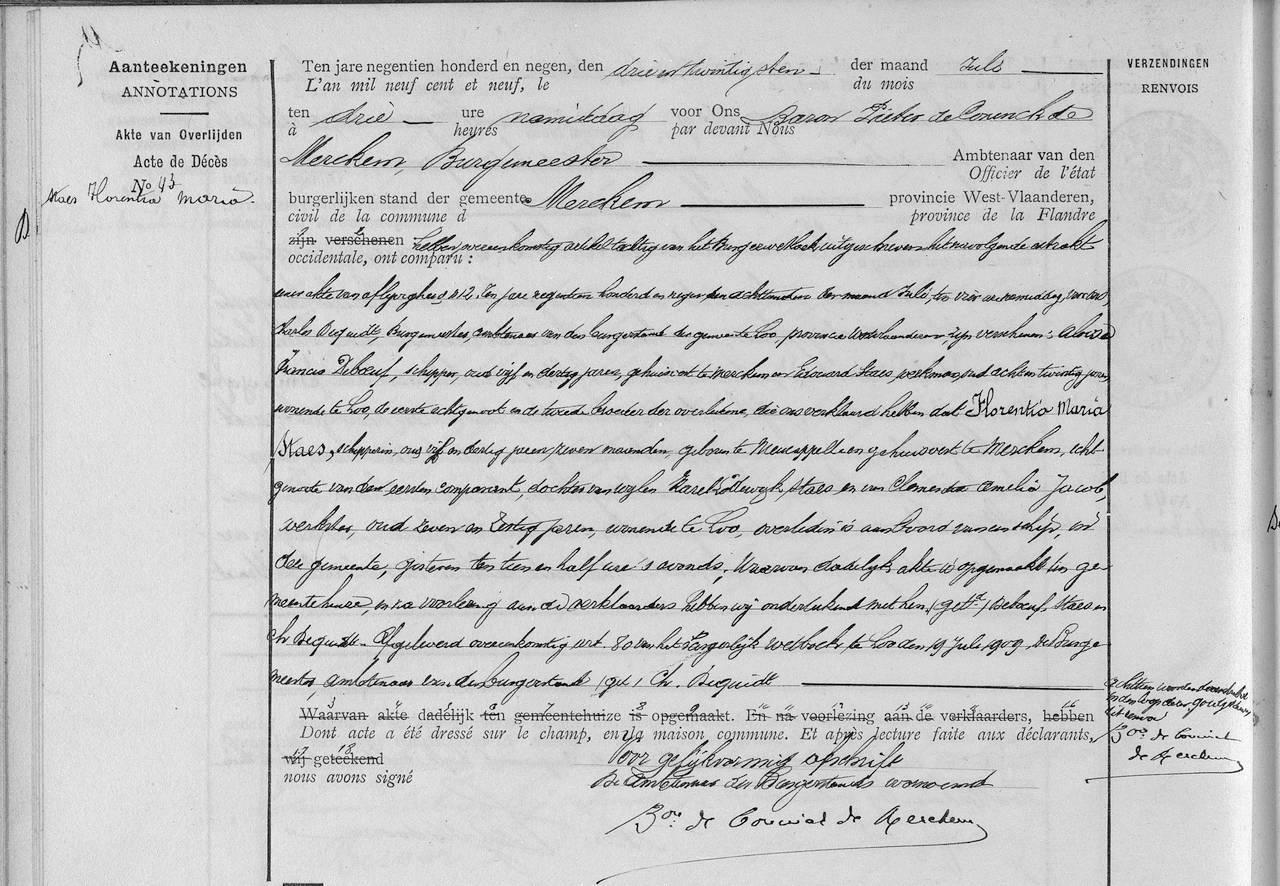 Aanteekeningen
ANNOTATIONS
Akte van Overlijden
Acte de Décès
No 43
Staes Florentia Maria.
Ten jare negentien honderd en negen, den drie en twintigsten der maand Juli
L'an mil neuf cent et neuf, le du mois
ten drie ure namiddag voor Ons Baron Pieter de Coninck de
à heures par devant Nous
Merckem, Burgemeester Ambtenaar van den
Officier de l'état
burgerlijken stand der gemeente Merckem provincie West-Vlaanderen,
civil de la commune d province de la Flandre
zijn verschenen hebben, overeenkomstig artikel tachtig van het Burger wetboek, uitgeschreven het navolgende extrakt
occidentale, ont comparu :
eener akte van aflijvigheid, N 12. Ten jare negentien honderd en negen, den achttienden der maand Juli, ten vier ure namiddag, voor ons,
Charles Beguidt, Burgemeester, ambtenaar van den burgerstand der gemeente Loo, provincie Westvlaanderen zijn verschenen: Aloïs
Francis Debœuf, schipper, oud vijf en dertig jaren, gehuisvest te Merckem en Edouard Staes, werkman, oud acht en twintig jaren,
wonende te Loo, de eerste echtgenoot en de tweede broeder der overledene, die ons verklaard hebben dat Florentia Maria
Staes, schipperin, oud vijf en dertig jaren, zeven maanden, geboren te Nieucappelle en gehuisvest te Merckem, echt
genoote van den eersten comparant, dochter van wijlen Karel Lodewijk Staes en van Clementia Amelia Jacob,
werkster, oud zeven en zestig jaren, wonende te Loo, overleden is aan boord van een schip, in
deze gemeente, gisteren ten tien en half ure 's avonds; Waarvan dadelijk akte is opgemaakt ten ge
meentehuize, en na voorlezing aan de verklaarders hebben wij onderteekend met hen. (get.) Debœuf, Staes en
Ch. Beguidt. Afgeleverd overeenkomstig art. 80 van het Burgerlijk wetboek, te Loo den 19 Juli 1909, De Burge
meester, ambtenaar van den burgerstand (get) Ch. Beguidt
Waarvan akte dadelijk ten gemeentehuize is opgemaakt. En na voorlezing aan de verklaarders, hebben
Dont acte a été dressé sur le champ, en la maison commune. Et après lecture faite aux déclarants,
wij geteekend Voor gelijkvormig afschrift
nous avons signé De Ambtenaar des Burgerstands voornoemd
Bon de Coninck de Merckem
VERZENDINGEN
RENVOIS
achttien woorden
dit renvooi
Bon de Coninck
de Merckem